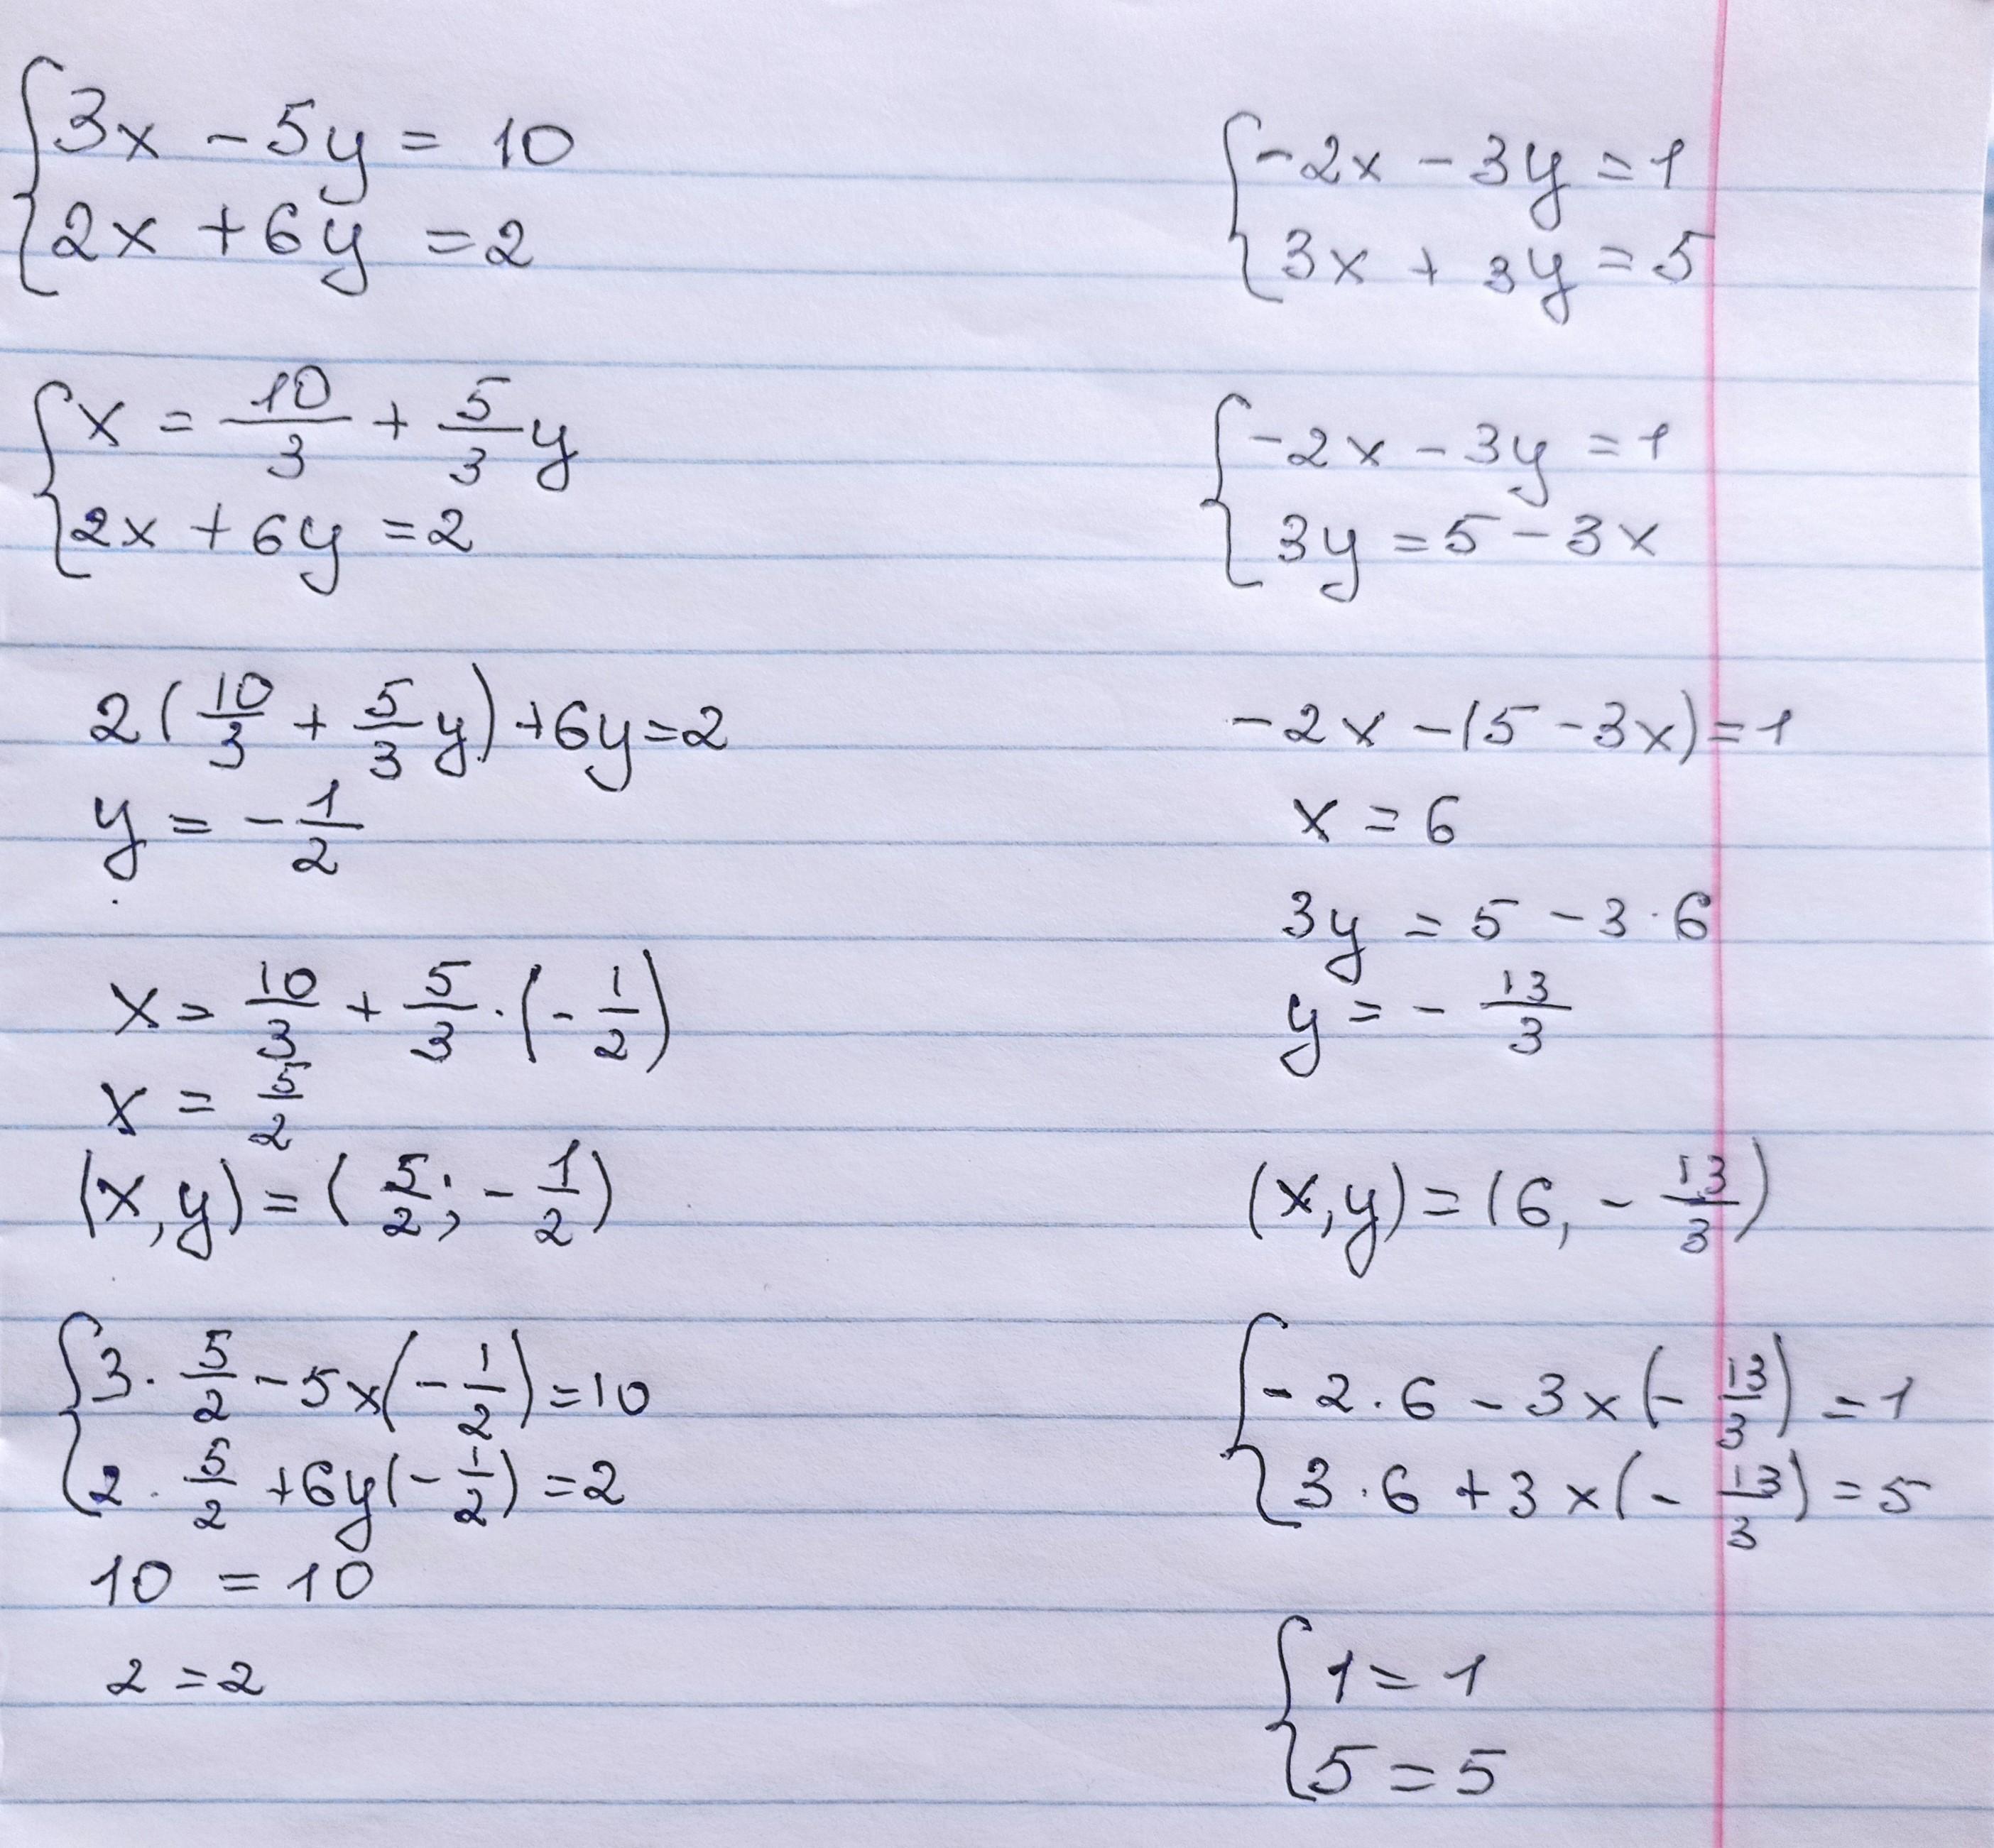 3x - 5y = 10
2x + 6y = 2
x = 10/3 + 5/3 y
2x + 6y = 2
2(10/3 + 5/3 y) + 6y = 2
y = - 1/2
x = 10/3 + 5/3 · (- 1/2)
x = 5/2
(x, y) = (5/2; - 1/2)
3 · 5/2 - 5x(- 1/2) = 10
2 · 5/2 + 6y(- 1/2) = 2
10 = 10
2 = 2
-2x - 3y = 1
3x + 3y = 5
-2x - 3y = 1
3y = 5 - 3x
-2x - (5 - 3x) = 1
x = 6
3y = 5 - 3 · 6
y = - 13/3
(x, y) = (6, - 13/3)
-2 · 6 - 3x(- 13/3) = 1
3 · 6 + 3x(- 13/3) = 5
1 = 1
5 = 5